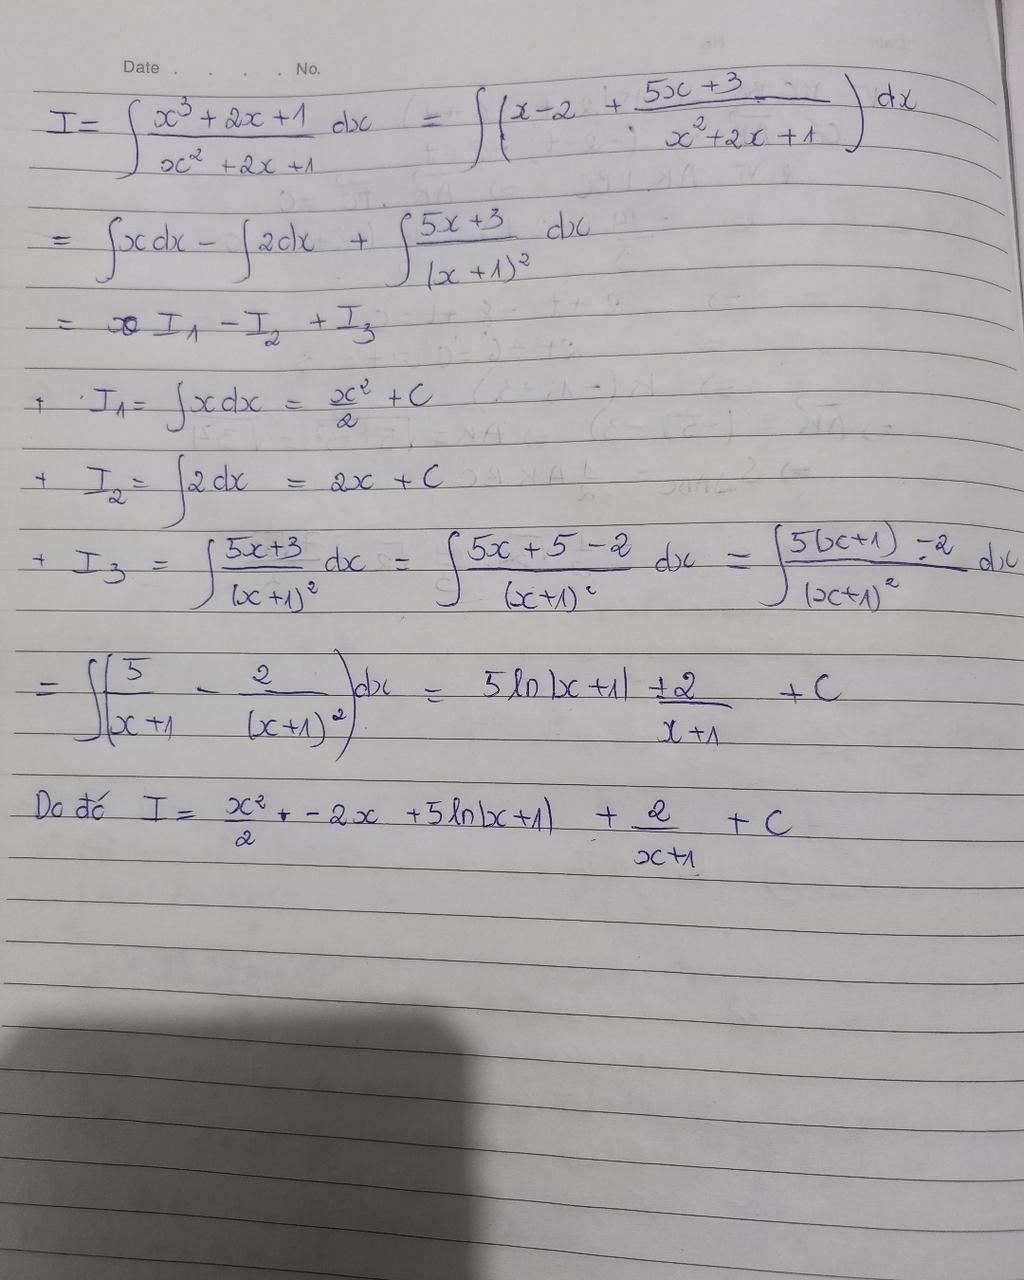 Date . . . . No.
I = ∫ (x³ + 2x + 1)/(x² + 2x + 1) dx = ∫ (x - 2 + (5x + 3)/(x² + 2x + 1)) dx
= ∫ x dx - ∫ 2 dx + ∫ (5x + 3)/(x + 1)² dx
= I₁ - I₂ + I₃
+ I₁ = ∫ x dx = x²/2 + C
+ I₂ = ∫ 2 dx = 2x + C
+ I₃ = ∫ (5x + 3)/(x + 1)² dx = ∫ (5x + 5 - 2)/(x + 1)² dx = ∫ (5(x + 1) - 2)/(x + 1)² dx
= ∫ (5/(x + 1) - 2/(x + 1)²) dx = 5 ln|x + 1| + 2/(x + 1) + C
Do đó I = x²/2 - 2x + 5 ln|x + 1| + 2/(x + 1) + C